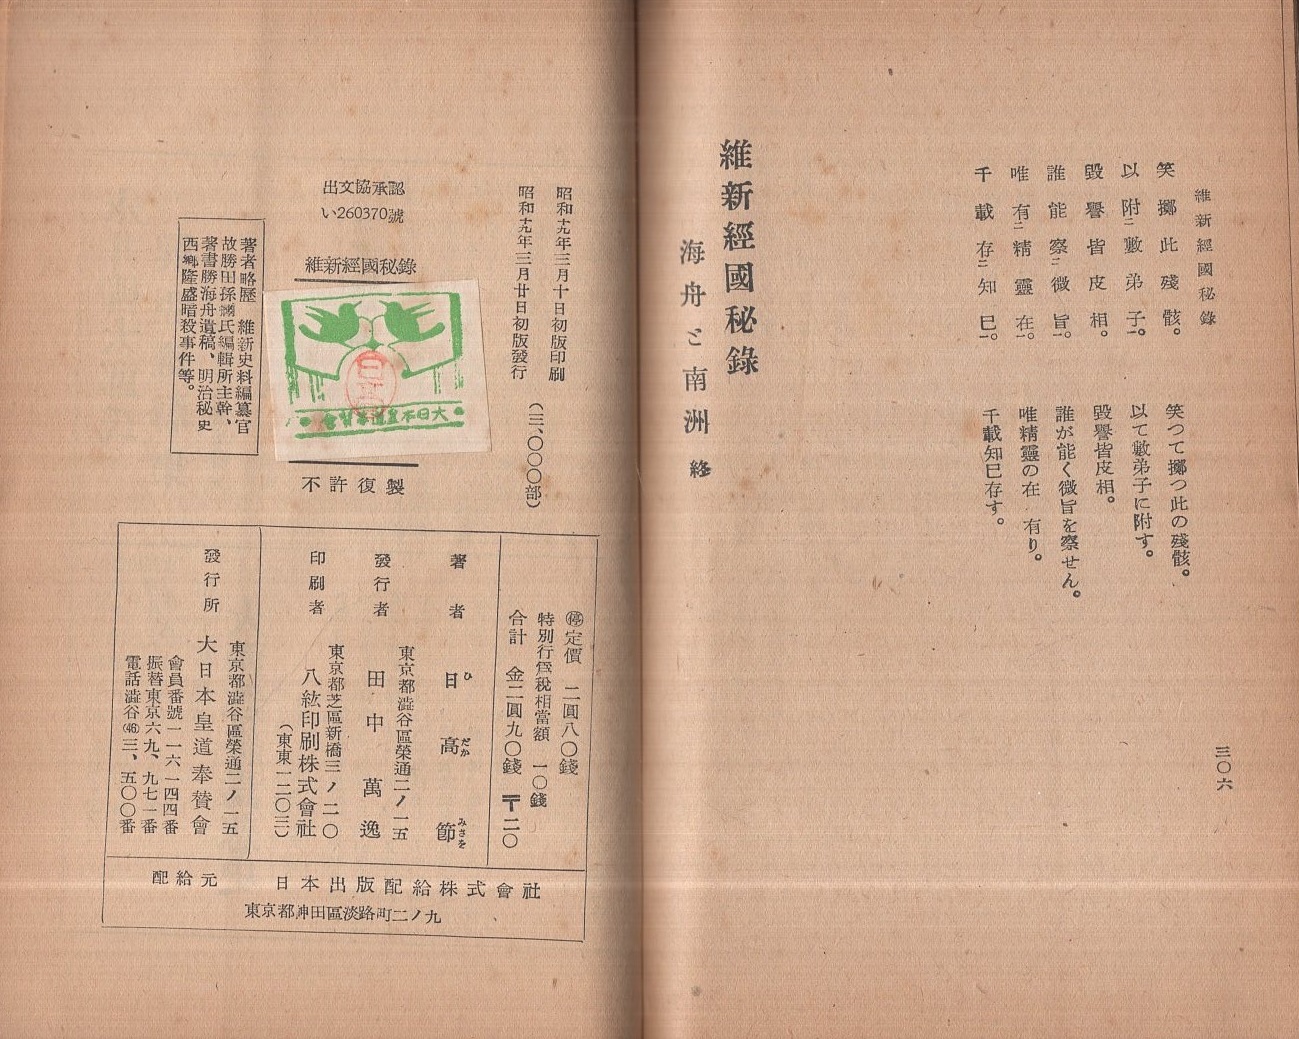 維新經國秘錄
三〇六
笑擲此殘骸。
以附ニ數弟子一。
毀譽皆皮相。
誰能察ニ微旨一。
唯有ニ精靈在一。
千載存ニ知己一。
笑つて擲つ此の殘骸。
以て數弟子に附す。
毀譽皆皮相。
誰が能く微旨を察せん。
唯精靈の在 有り。
千載知己存す。
維新經國秘錄
海舟と南洲 終
昭和十九年三月十日初版印刷
昭和十九年三月廿日初版發行
(三、〇〇〇部)
出文協承認
い260370號
維新經國秘錄
大日本皇道奉賛會
不許復製
著者略歷 維新史料編纂官
故勝田孫彌氏編輯所主幹、
著書勝海舟遺稿、明治秘史
西鄕隆盛暗殺事件等。
㊡定價 二圓八〇錢
特別行爲稅相當額 一〇錢
合計 金二圓九〇錢 〒二〇
著者 日高節
ひ だか みさを
東京都澁谷區榮通二ノ一五
發行者 田中萬逸
東京都芝區新橋三ノ二〇
印刷者 八紘印刷株式會社
(東東一二〇三)
東京都澁谷區榮通二ノ一五
發行所 大日本皇道奉賛會
會員番號一一六一四四番
振替東京六九、九七一番
電話澁谷(46)三、五〇〇番
配給元 日本出版配給株式會社
東京都神田區淡路町二ノ九